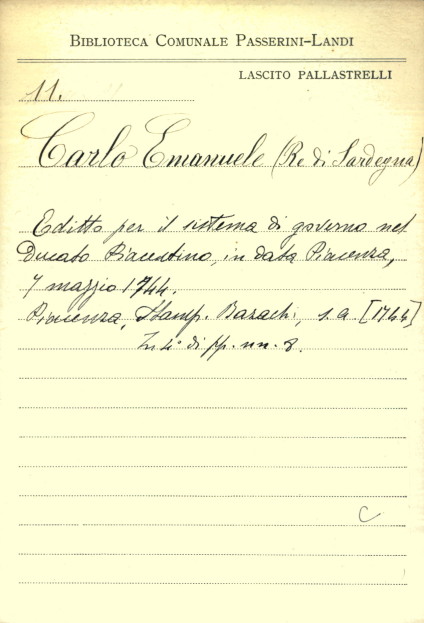 BIBLIOTECA COMUNALE PASSERINI-LANDI
LASCITO PALLASTRELLI
11.
Carlo Emanuele (Re di Sardegna)
Editto per il sistema di governo nel
Ducato Piacentino, in data Piacenza,
7 maggio 1744.
Piacenza, Stamp. Bazachi, s. a. [1744]
In 4° di pp. nn. 8.
C